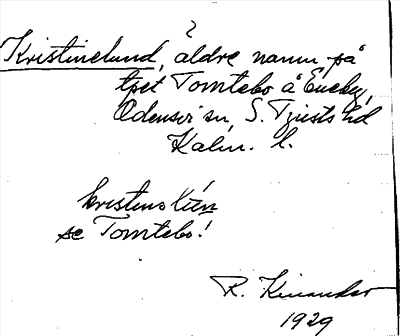 ?
Kristinelund, äldre namn på
tpet Tomtebo å Eneby,
Odensvi sn, S. Tjusts hd
Kalm. l.
se Tomtebo!
R. Kinander
1929